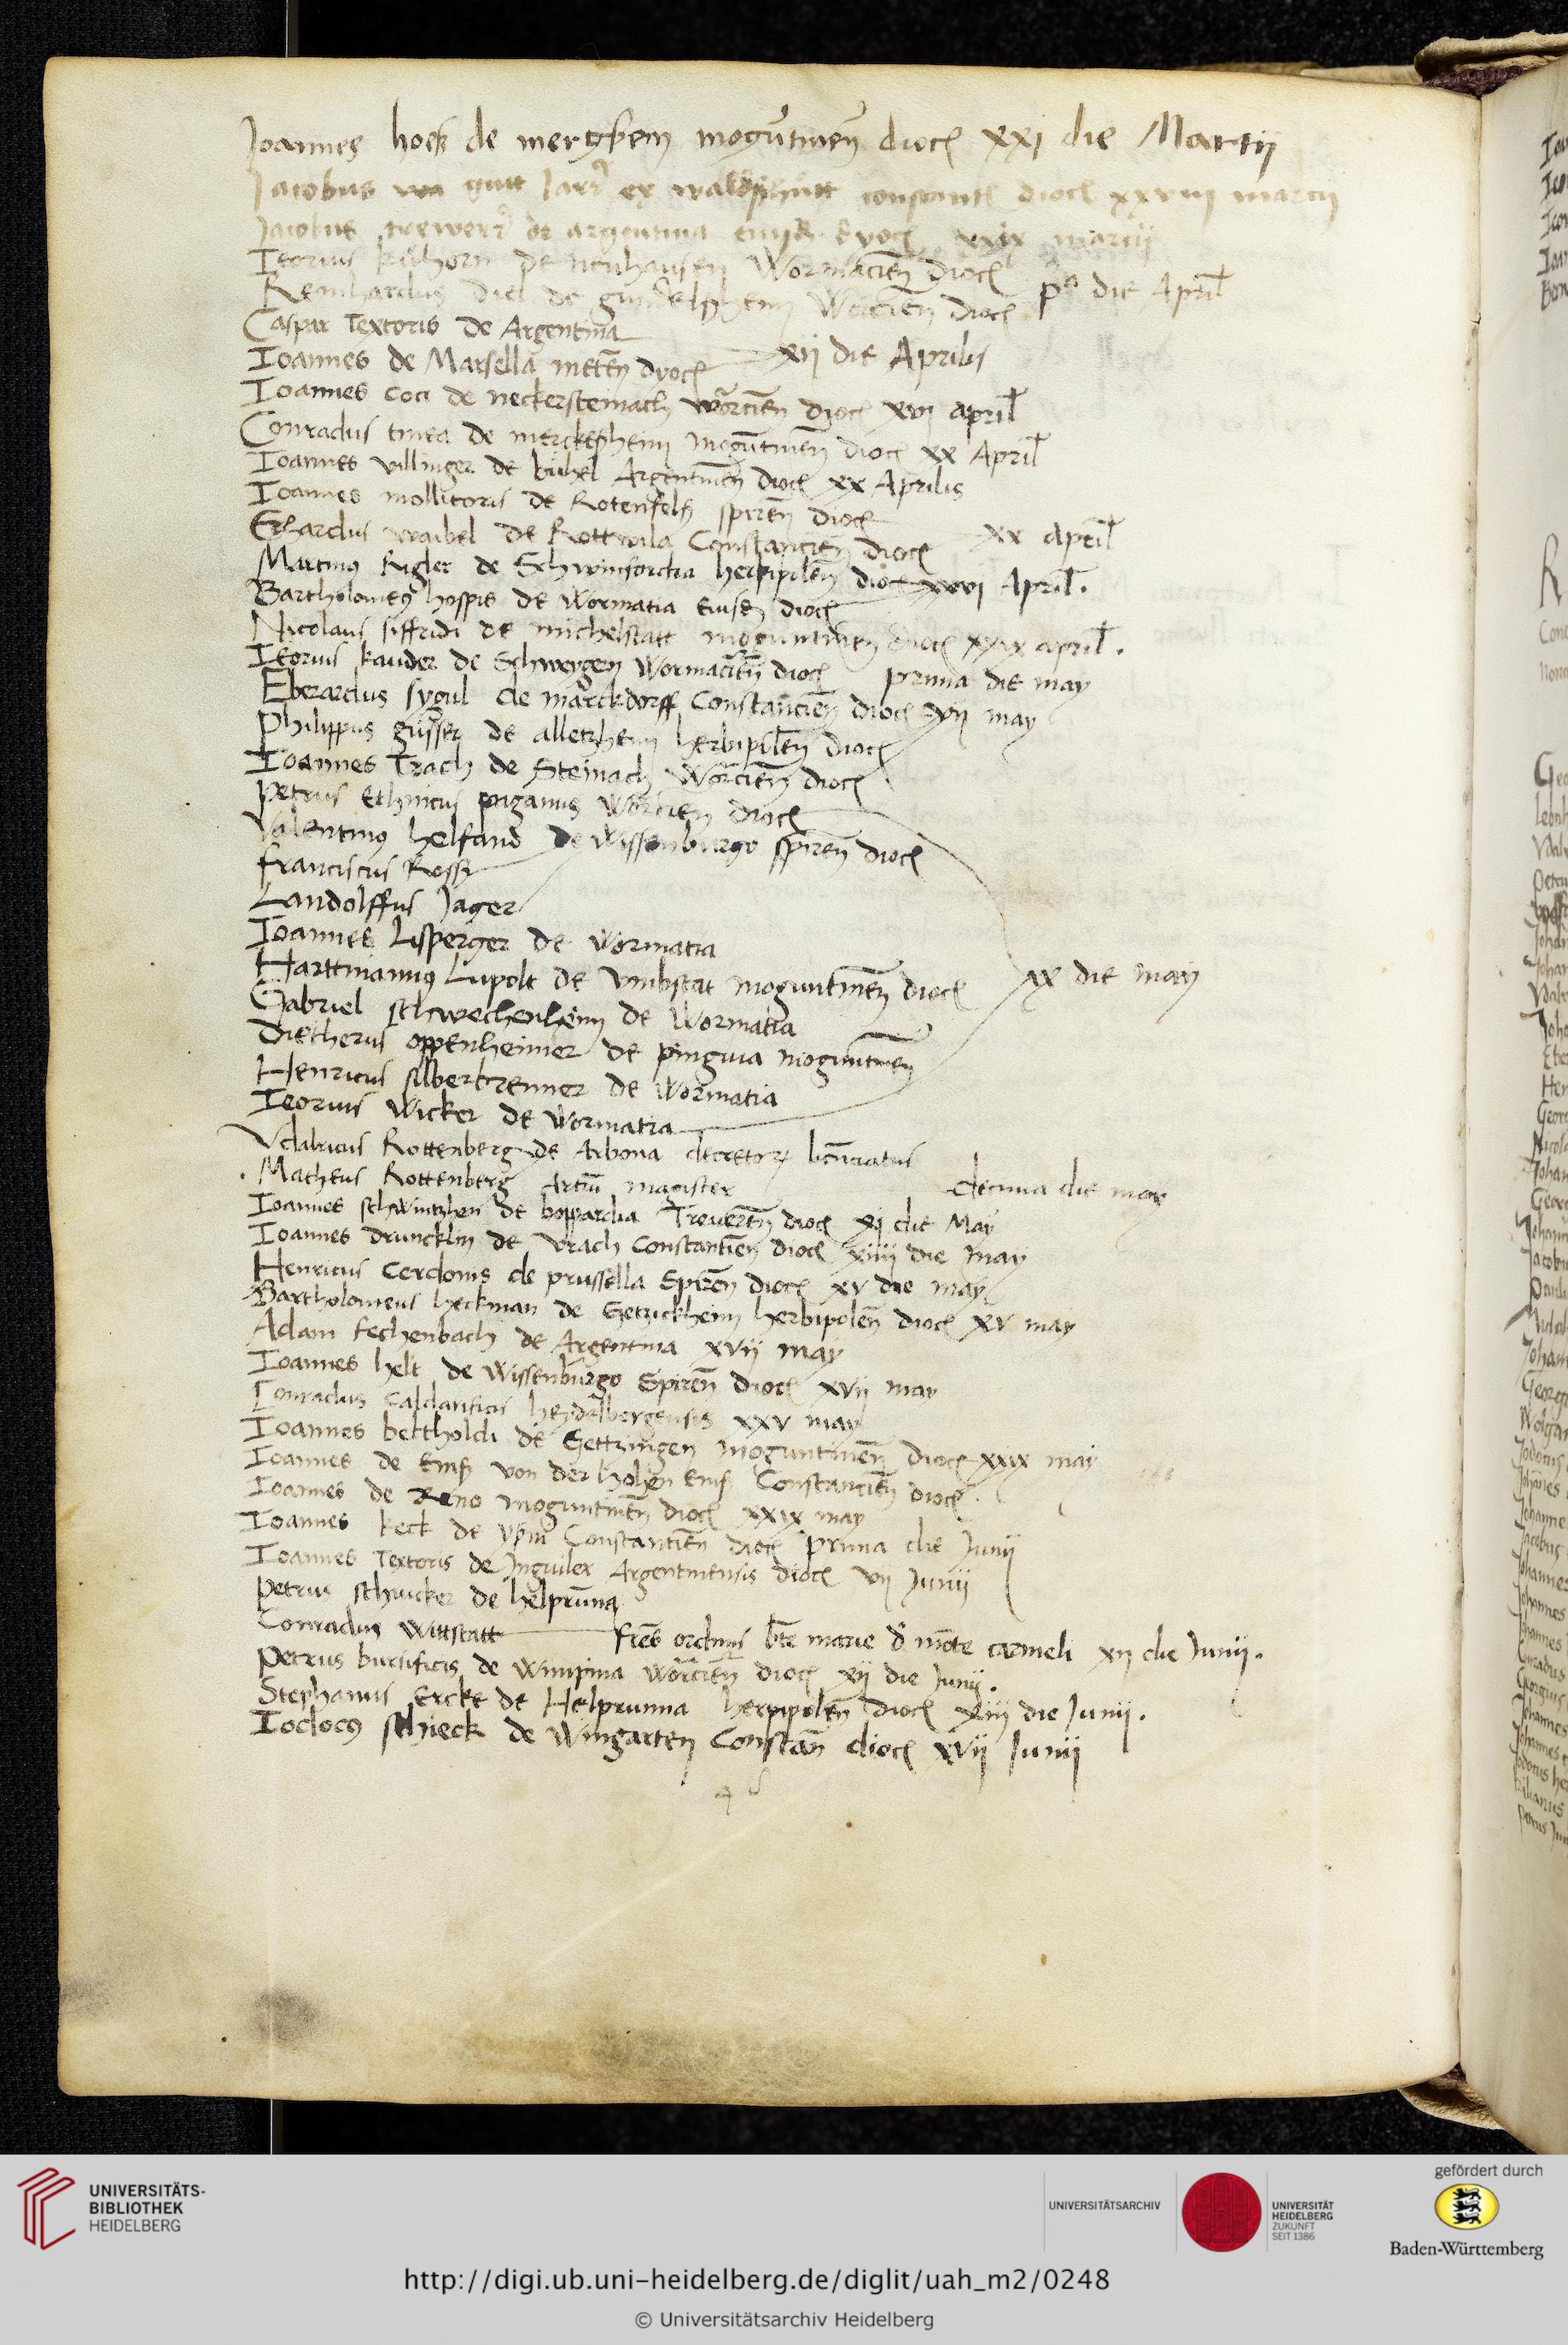 Ioannes hoeß de mergken mogūtineñ dioc xxj die Martij
Iacobus gutt Iar ex waldßhutt constant dioc xxviij marcij
Iacobus trewer de argentina eiusd dyoc xxix marcij
Ieorius kuͤhorn de neuhausen Wormacieñ dioc
Reinhardus diel de gundelßheim Worcieñ dioc pᵃ die April
Caspar Textoris de Argentina
Ioannes de Marsella meteñ dyoc xij die Aprilis
Ioannes Coci de neckersteinach worcieñ dioc xvj april
Conradus tinea de merckeßheim mogūtineñ dioc xx April
Ioannes villinger de bühel Argentineñ dioc xx Aprilis
Ioannes mollitoris de Rotenfelß spireñ dioc
Erhardus waibel de Rottwila Constancieñ dioc xx april
Martinꝯ Rigler de Schwinfordia herbipoleñ dioc xxvj April.
Bartholomeꝯ hospis de Wormatia eiusdē dioc
Nicolaus siffridi de michelstatt moguntineñ dioc xxix april.
Ieorius kauder de Schweygen Wormacieñ dioc prima die may
Eberardus sygul de marckdorff Constancieñ dioc xij may
Philippus güsser de alletzheim herbipileñ dioc
Ioannes Trach de Steinach Worcieñ dioc
Petrus Ethnicus paganus Worcien dioc
Valentinꝯ helfand de Wissenburgo spireñ dioc
franciscus Ross
Landolffus Jager
Ioannes Lisperger de Wormatia
Harttmannꝯ Lupolt de Vmbstat moguntineñ dioc xx die may
Gabriel schwechenheim de Wormatia
Dietherus oppenheimer de pingwia moguntineñ
Henricus silberbrenner de Wormatia
Ieorius Wicker de Wormatia
Vdalricus Rottenberg de Arbona decretoꝝ licenciatus
Matheus Rottenberg Artiū magister decima die may
Ioannes schwintzhen de boppardia Treuereñ dioc xj die May
Ioannes druncklin de Vrach Constantieñ dioc xiiij die may
Henricus Cerdonis de prussella Spireñ dioc xv die may
Bartholomeus heckman de Getzickheim herbipoleñ dioc xv may
Adam fechenbach de Argentina xvij may
Ioannes helt de Wissenburgo Spireñ dioc xvij may
Conradus Caldarificis heydelbergensis xxv may
Ioannes bertholdi de Gettzingen moguntineñ dioc xxix may
Ioannes de Emß von der hohen Emß Constancieñ dioc
Ioannes de Reno moguntineñ dioc xxix may
Ioannes keck de Constantieñ dioc prima die Junij
Ioannes Textoris de Jnguiler Argentinensis dioc vij Junij
Petrus schucker de helpruna
Conradus Wittstatt frēs ordinis btē marie d mōte carmeli xij die Junij.
Petrus bursificis de Wimpina Worcieñ dioc xij die Junij.
Stephanus Ercke de Helprunna herbipoleñ dioc xiij die Junij.
Iodocꝯ schieck de Wingarten Constañ dioc xvij Junij
UNIVERSITÄTS-
BIBLIOTHEK
HEIDELBERG
UNIVERSITÄTSARCHIV
UNIVERSITÄT
HEIDELBERG
ZUKUNFT
SEIT 1386
gefördert durch
Baden-Württemberg
http://digi.ub.uni-heidelberg.de/diglit/uah_m2/0248
© Universitätsarchiv Heidelberg